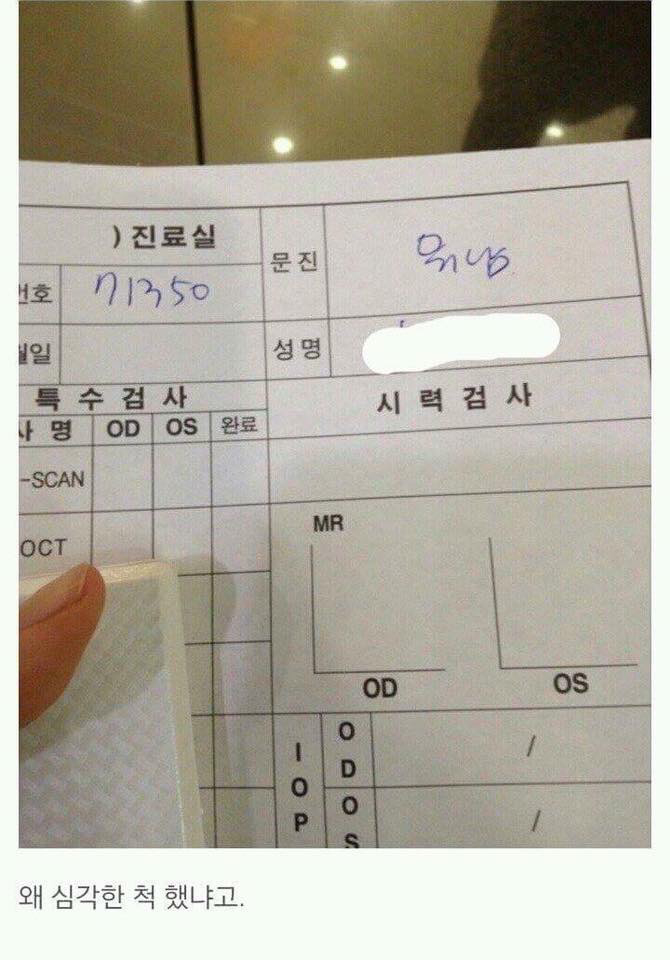 ) 진료실
문 진
번호
71350
월일
성 명
특 수 검 사
시 력 검 사
사 명
OD
OS
완료
-SCAN
OCT
MR
OD
OS
IOP
OD
/
OS
/
왜 심각한 척 했냐고.